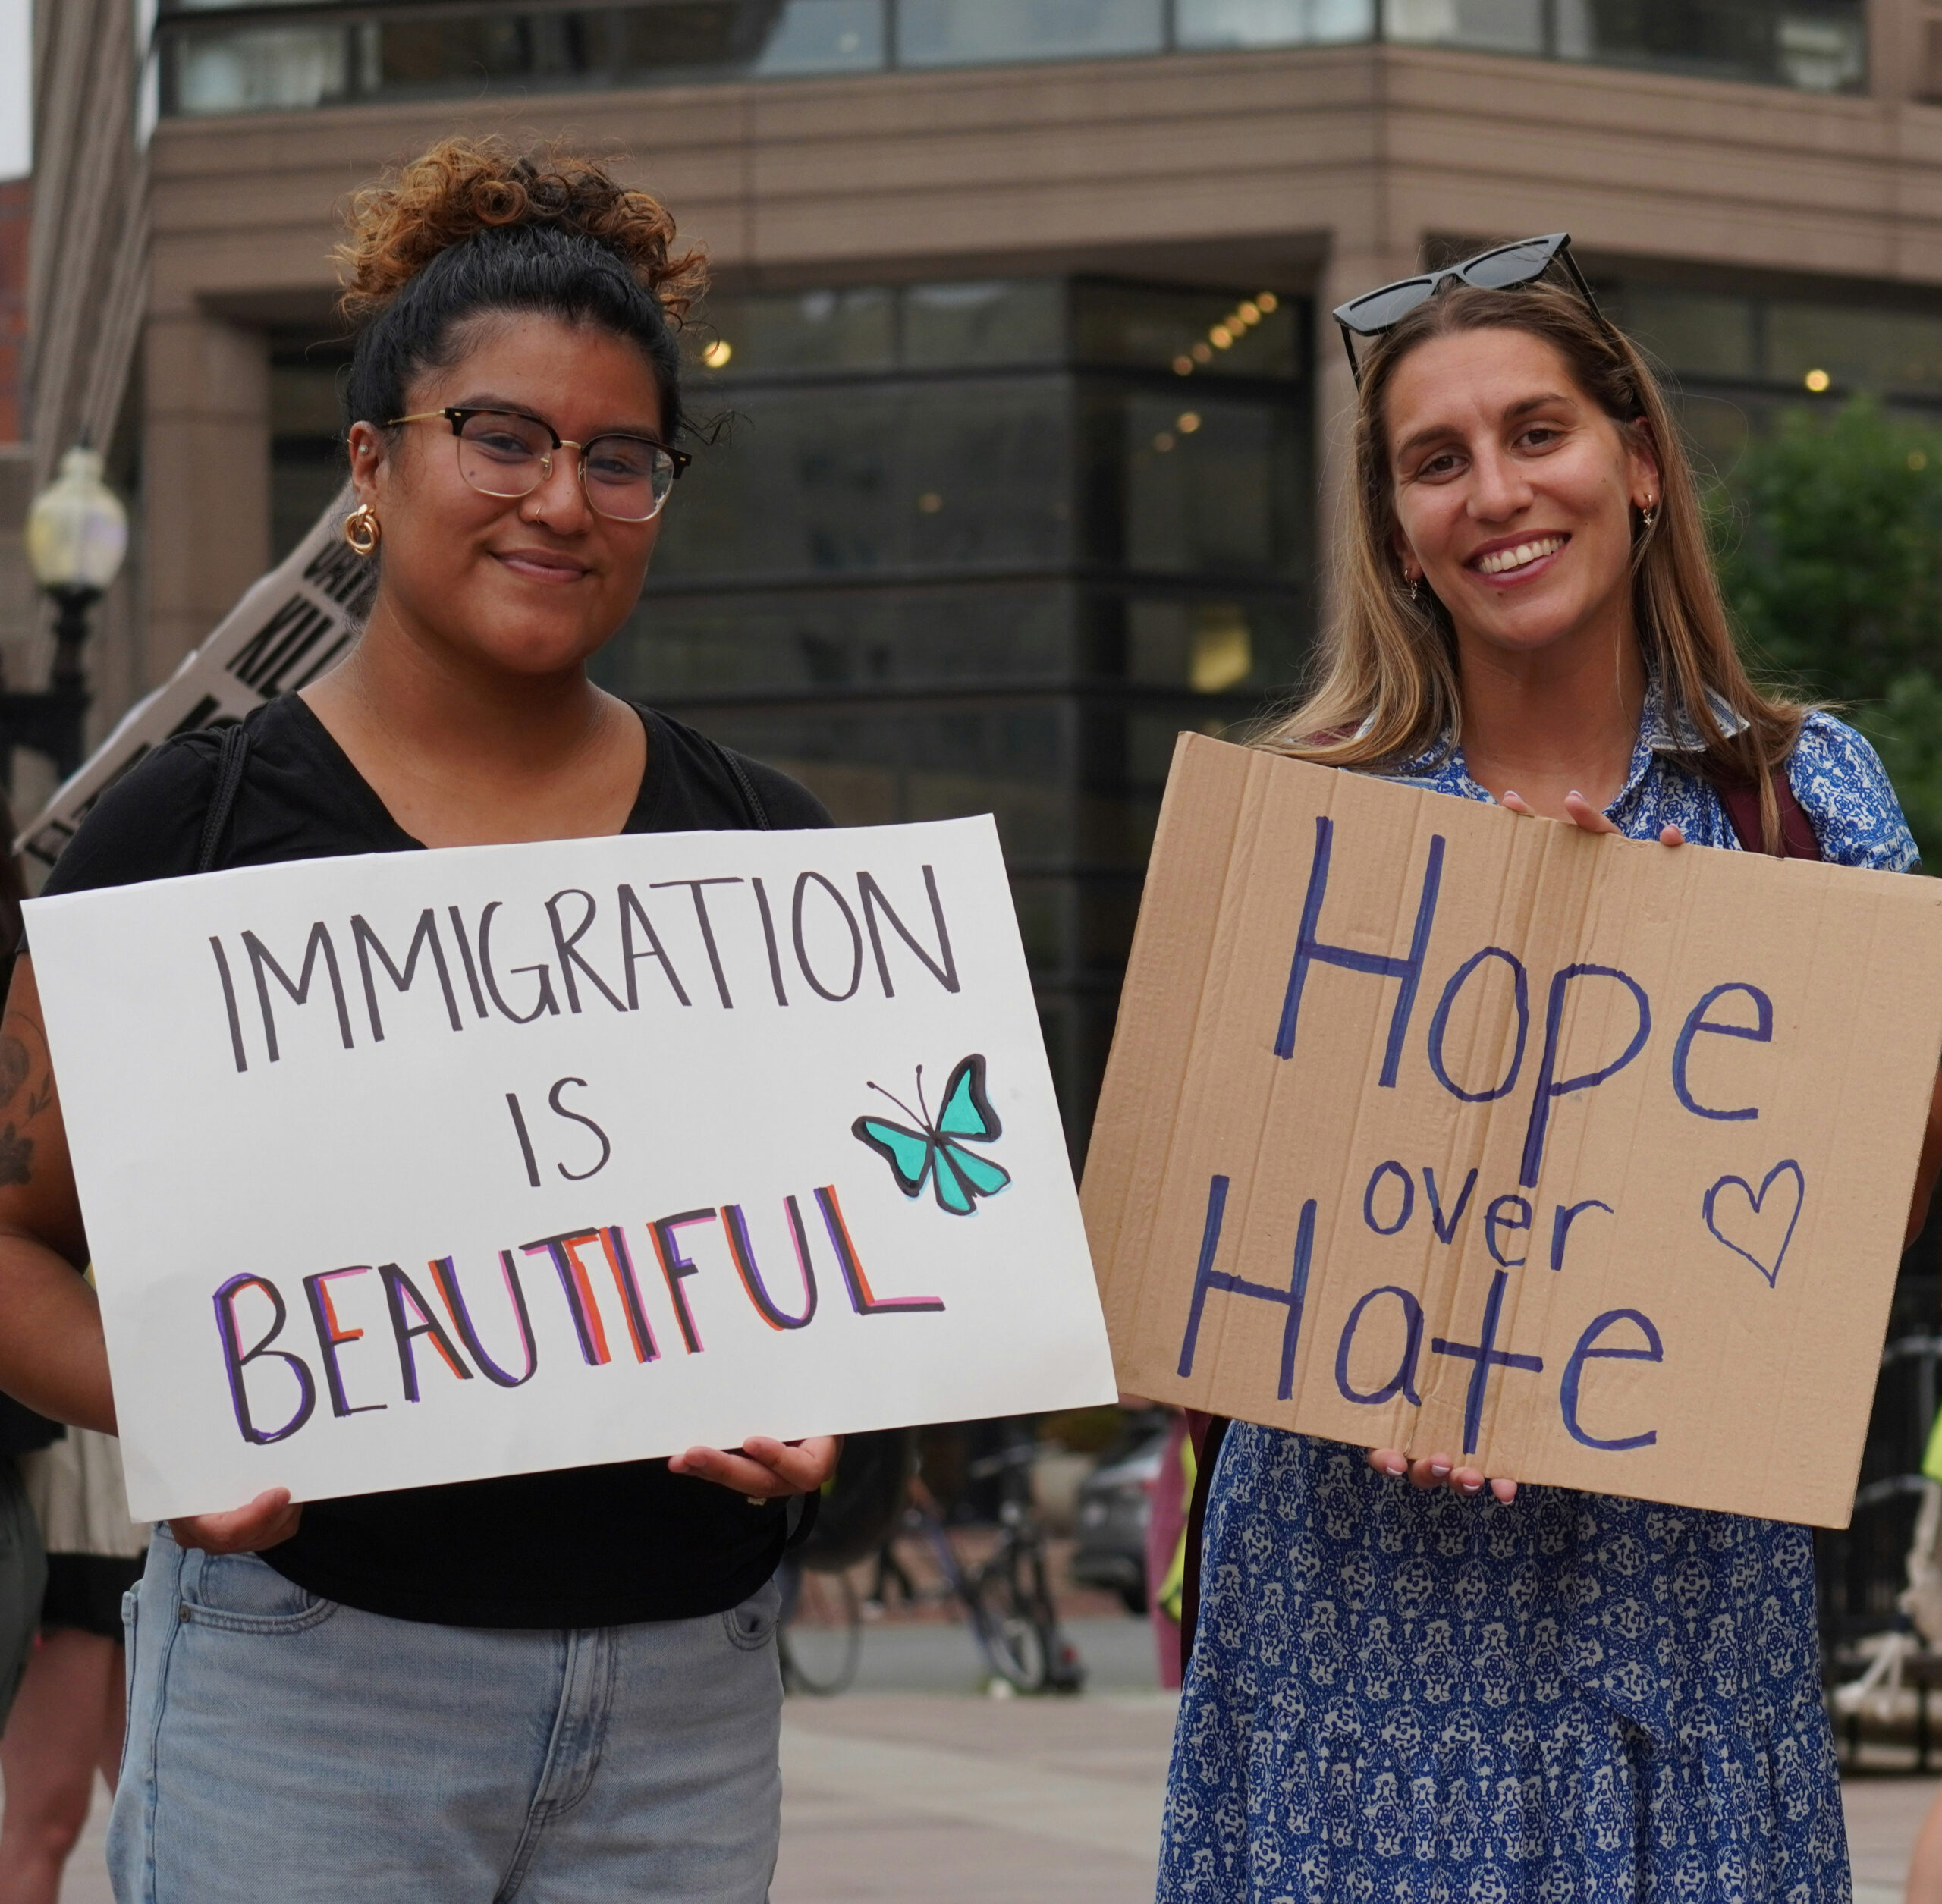 IMMIGRATION
IS
BEAUTIFUL
Hope
over
Hate